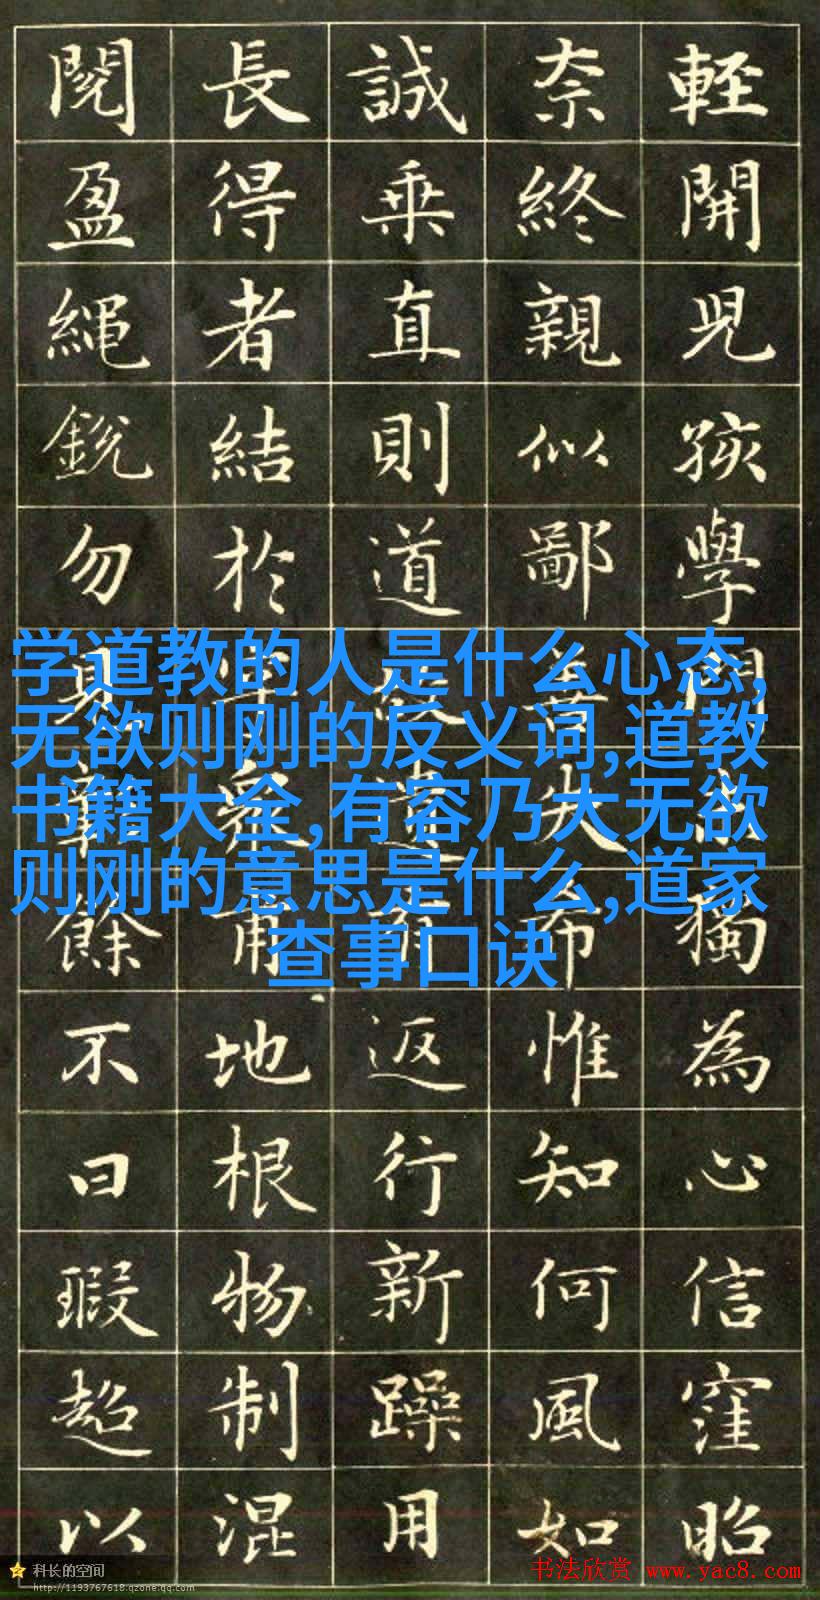 輕開兒孩學門獨為心信窪昭
奈終親似鄙善失希惟知何風如
誠乗直則道返行新躁用
長得者結於地根物制混
閱盈繩銳勿餘不曰瑕超以
学道教的人是什么心态,
无欲则刚的反义词,道教
书籍大全,有容乃大无欲
则刚的意思是什么,道家
查事口诀
科长的空间
http://1193767618.qzone.qq.com
书法欣赏 www.yac8.com